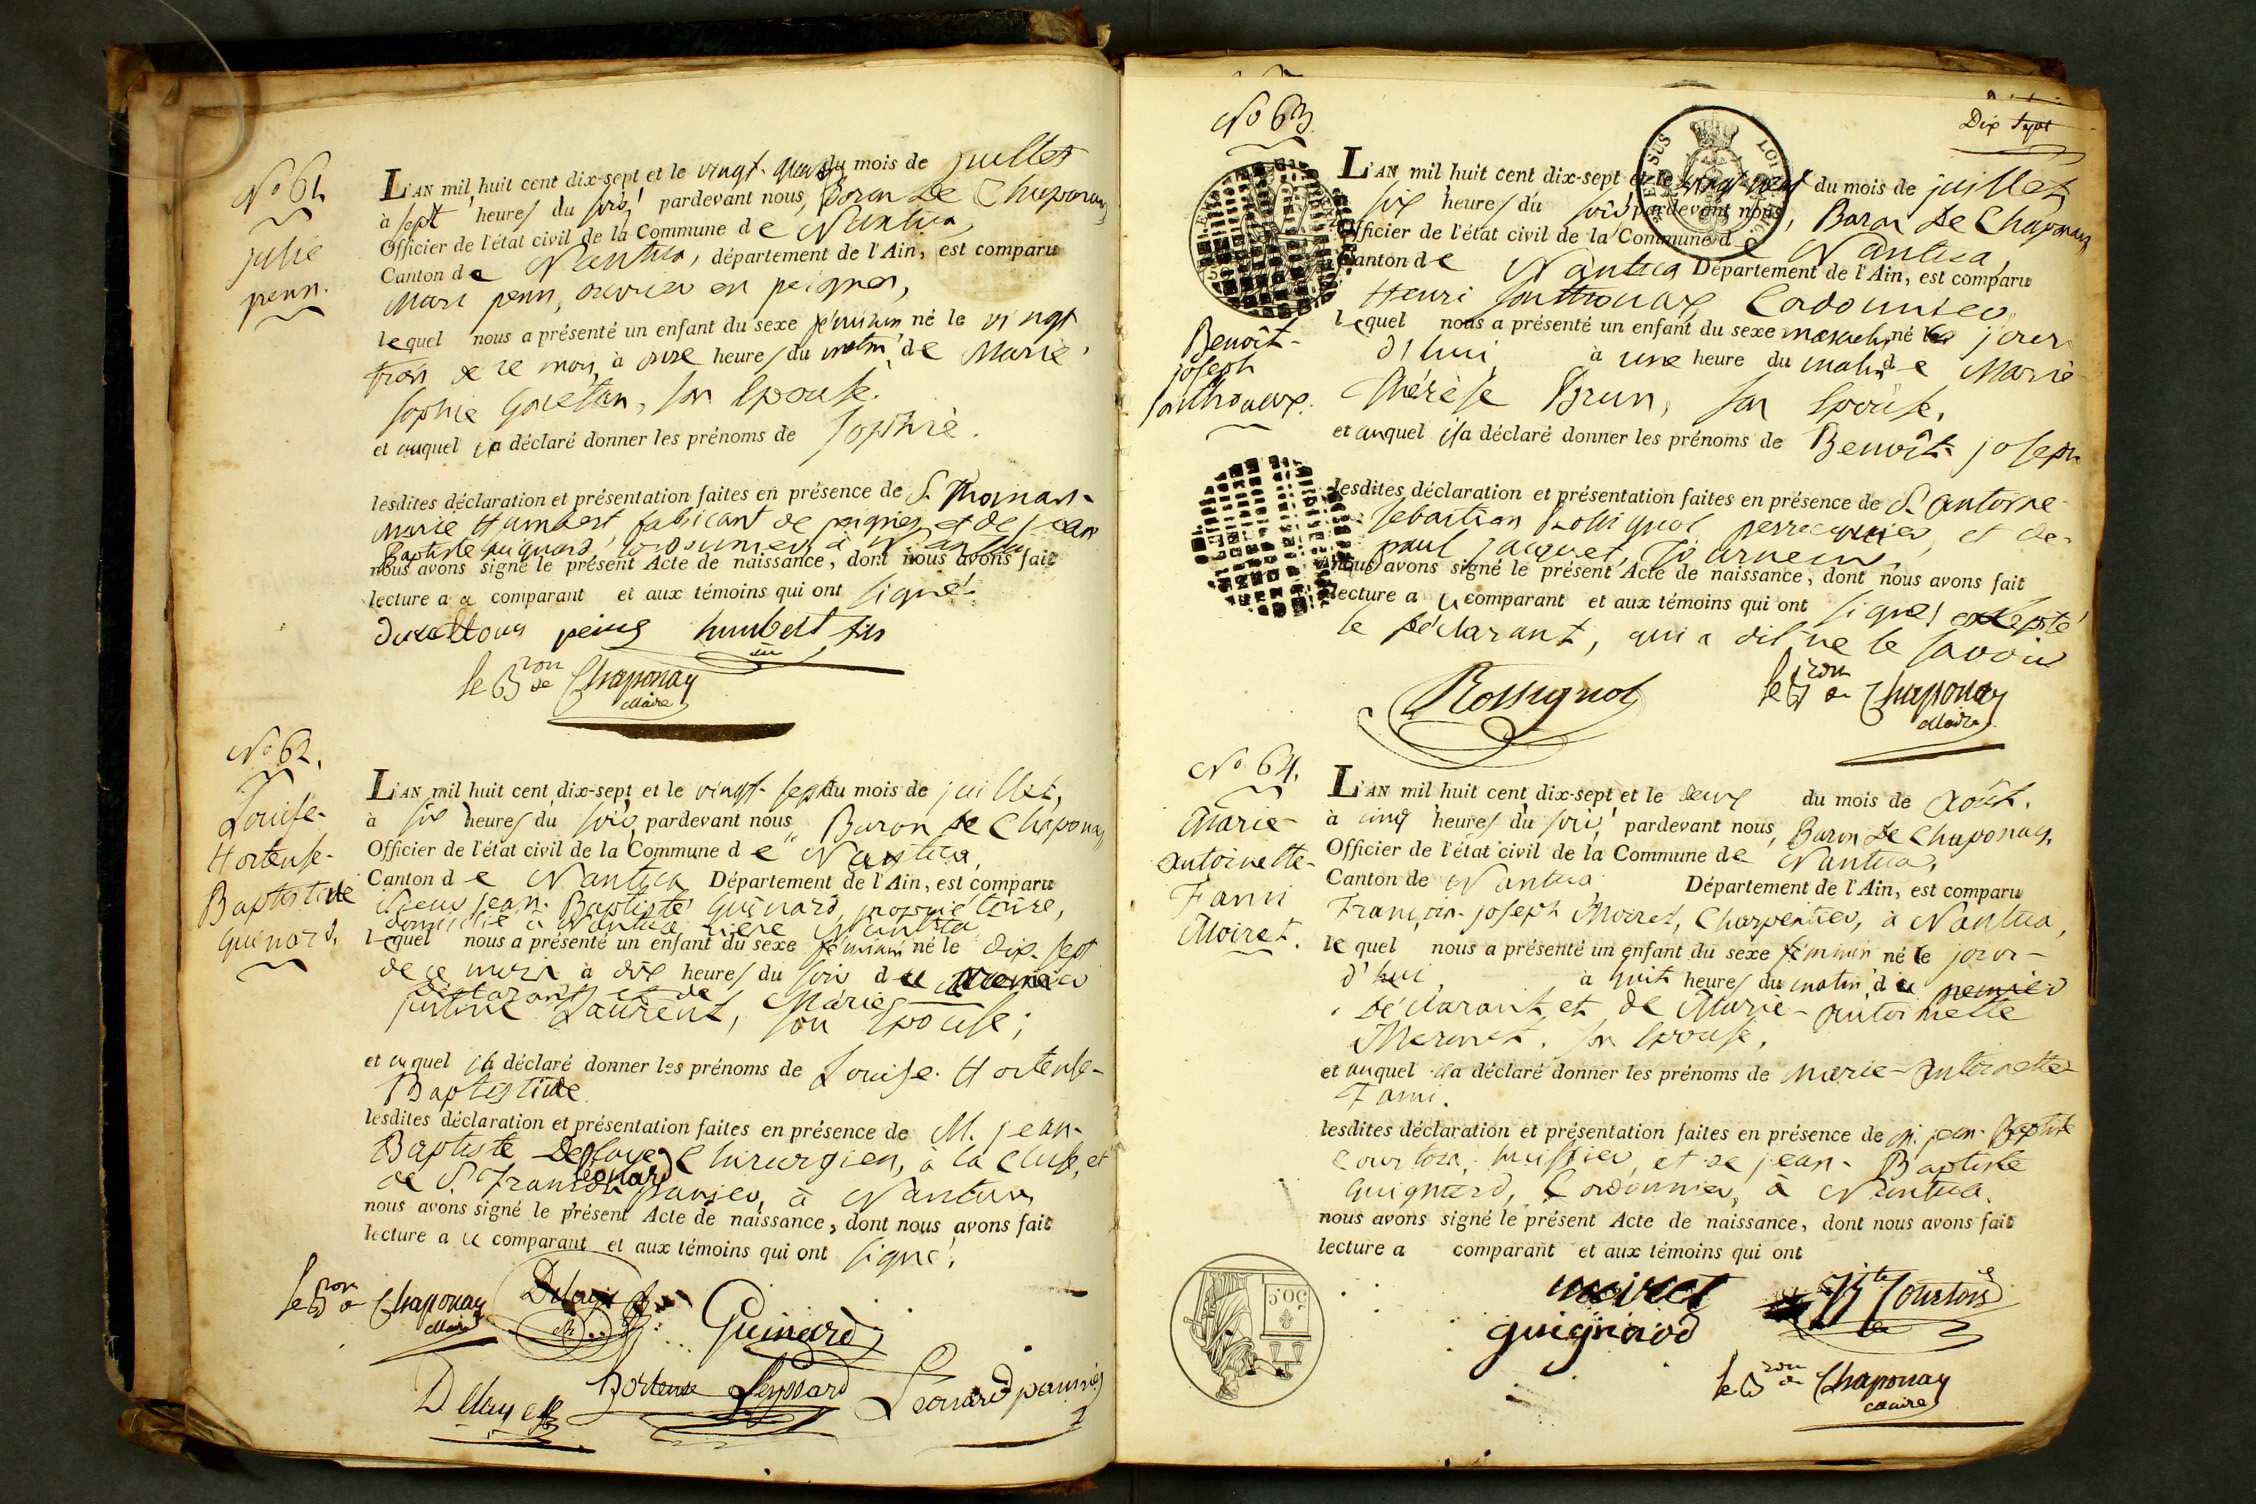 No 61.
julie
penn.
L'AN mil huit cent dix-sept et le vingt-quatre du mois de juillet
à sept heures du soir, pardevant nous, Baron De Chaponay,
Officier de l'état civil de la Commune de Nantua
Canton de Nantua, département de l'Ain, est comparu
Marc penn, ouvrier en peignes,
lequel nous a présenté un enfant du sexe féminin né le vingt
trois de ce mois, à onze heures du matin de Marie
sophie Goietan, son Epouse.
et auquel il a déclaré donner les prénoms de Sophie.
lesdites déclaration et présentation faites en présence de S. Thomas-
marie Humbert fabricant de peignes, et de jean
Baptiste guignard, cordonnier, à Nantua
nous avons signé le présent Acte de naissance, dont nous avons fait
lecture au comparant et aux témoins qui ont signé
humbert fils
le Bron de Chaponay
Maire
No 62.
Louise-
Hortense-
Baptistine
Guinard.
L'AN mil huit cent dix-sept et le vingt-sept du mois de juillet,
à six heures du soir, pardevant nous Baron De Chaponay,
Officier de l'état civil de la Commune de Nantua,
Canton de Nantua Département de l'Ain, est comparu
Sieur jean-Baptiste Guinard, propriétaire,
domicilié à Nantua
lequel nous a présenté un enfant du sexe féminin né le dix-sept
de ce mois à dix heures du soir du premier
déclarant et de Marie
justine Laurent, son Epouse;
et auquel il a déclaré donner les prénoms de Louise-Hortense-
Baptistine
lesdites déclaration et présentation faites en présence de M. jean-
Baptiste Delaye Chirurgien, à la Cluse, et
de S. François Léonard pannier, à Nantua,
nous avons signé le présent Acte de naissance, dont nous avons fait
lecture au comparant et aux témoins qui ont signé.
le Bron de Chaponay
Maire
Guinard
Delaye
hortense Leyssard
Léonard pannier
Dix Sept
No 63.
Benoît-
joseph
Sonthonax.
LOI
L'AN mil huit cent dix-sept et le vingt neuf du mois de juillet
six heures du soir pardevant nous, Baron De Chaponay,
Officier de l'état civil de la Commune de Nantua,
Canton de Nantua Département de l'Ain, est comparu
Henri Sonthonax, Cordonnier,
lequel nous a présenté un enfant du sexe masculin né le jour
d'hui, à une heure du matin de Marie
Thérèse Brun, son Epouse,
et auquel il a déclaré donner les prénoms de Benoît joseph
lesdites déclaration et présentation faites en présence de S. antoine
Sebastien Rossignol perruquier, et de
paul jacquet, Tourneur,
nous avons signé le présent Acte de naissance, dont nous avons fait
lecture au comparant et aux témoins qui ont signé, excepté
le déclarant, qui a dit ne le savoir
Rossignol
le Bron de Chaponay
Maire
No 64.
Marie-
antoinette-
Fanni
Moiret.
L'AN mil huit cent dix-sept et le deux du mois de Août.
à cinq heures du soir, pardevant nous, Baron De Chaponay,
Officier de l'état civil de la Commune de Nantua,
Canton de Nantua Département de l'Ain, est comparu
François-joseph Moiret, Charpentier, à Nantua,
lequel nous a présenté un enfant du sexe féminin né le jour-
d'hui, à huit heures du matin du premier
Déclarant et de Marie-antoinette
Mermet, son Epouse,
et auquel il a déclaré donner les prénoms de Marie-Antoinette
Fanni.
lesdites déclaration et présentation faites en présence de M. jean-Baptiste
Courtois, huissier, et de jean-Baptiste
Guignard, Cordonnier, à Nantua.
nous avons signé le présent Acte de naissance, dont nous avons fait
lecture a comparant et aux témoins qui ont
moiret
Bte Courtois
guignard
le Bron de Chaponay
Maire
50.C